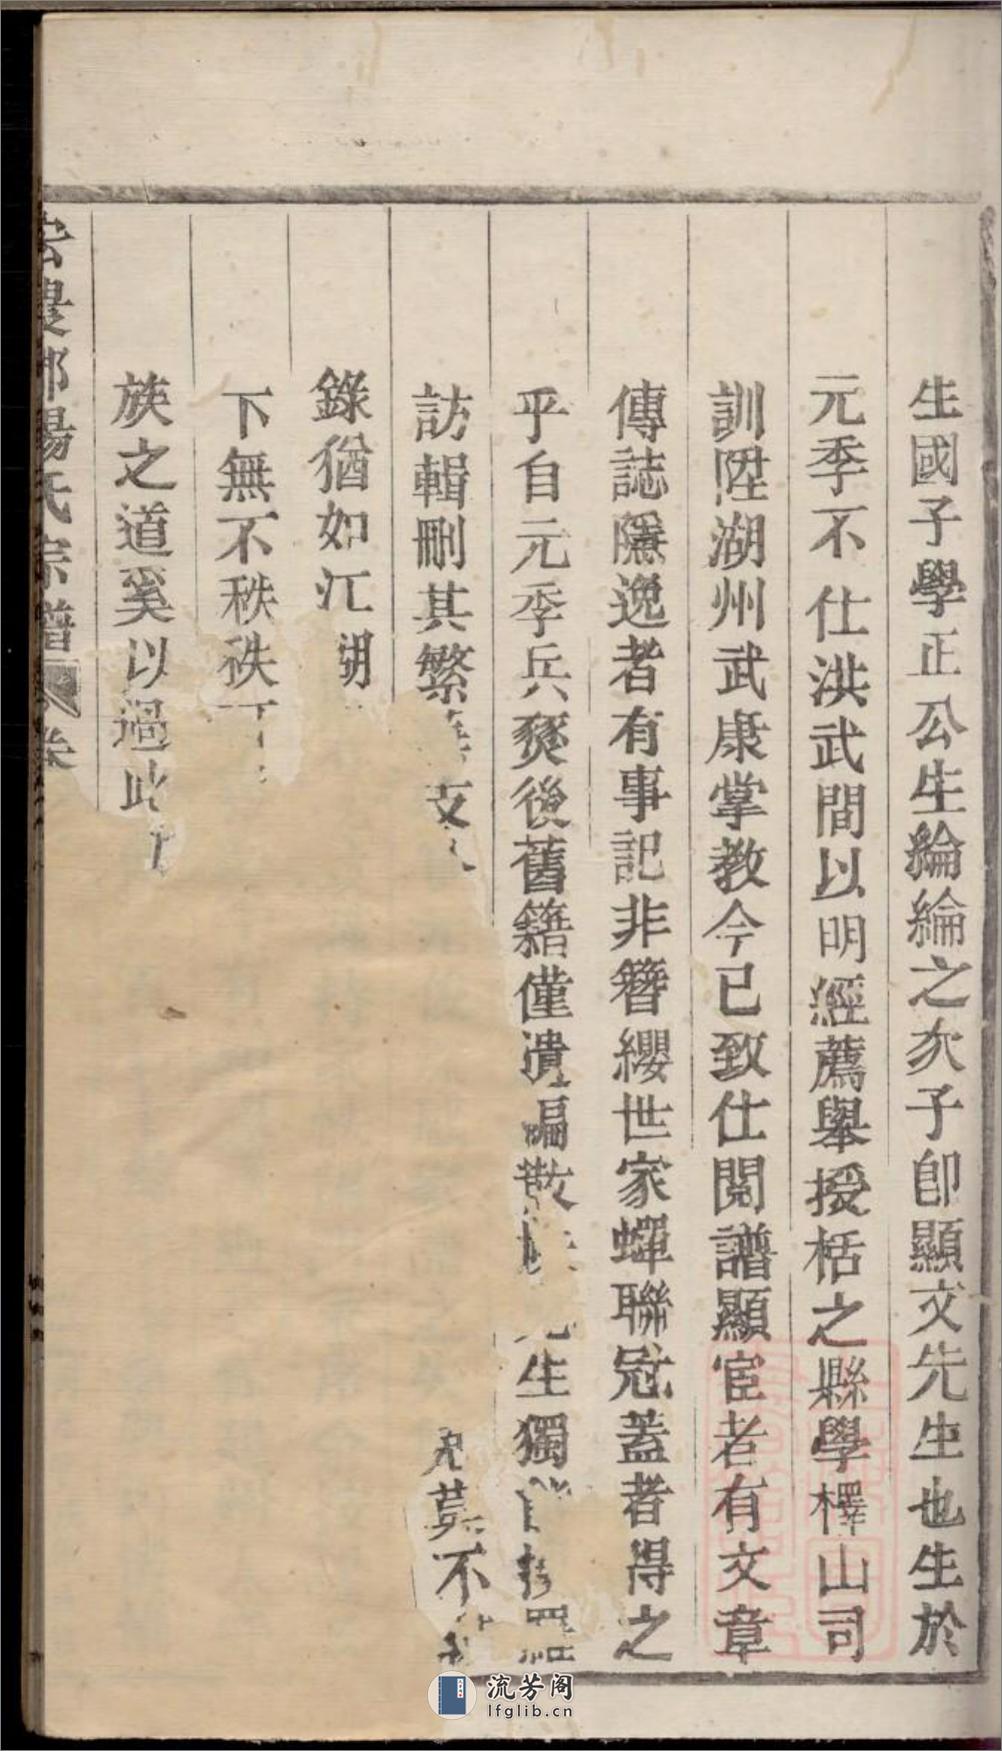 生國子學正公生綸綸之次子卽顯文先生也生於
元季不仕洪武間以明經薦舉授栝之縣學樿山司
訓陞湖州武康掌教今已致仕閱譜顯宦者有文章
傳誌隱逸者有事記非簪纓世家蟬聯冠蓋者得之
乎自元季兵燹後舊籍僅遺編散 先生獨 羅
訪輯刪其繁 支 莫不
錄猶如江湖
下無不秩秩
族之道奚以過此
楊氏宗譜 卷
流芳阁
lfglib.cn